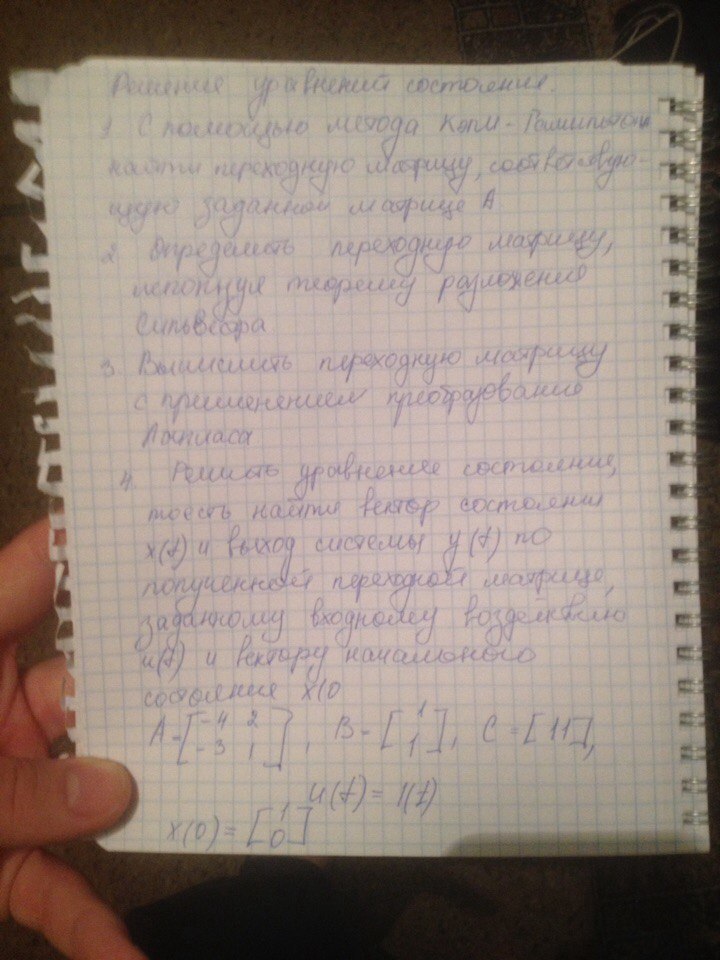 Решение уравнений состояния.
1 С помощью метода Кэли-Гамильтона
найти переходную матрицу, соответствую-
щую заданной матрице A
2. Определить переходную матрицу,
используя теорему разложения
Сильвестра
3. Вычислить переходную матрицу
с применением преобразования
Лапласа
4. Решить уравнение состояния,
тоесть найти вектор состояния
x(t) и выход системы y(t) по
полученной переходной матрице,
заданному входному воздействию
u(t) и вектору начального
состояния x(0
A=[-4 2 -3 1], B=[1 1], C=[11],
u(t)=1(t)
x(0)=[1 0]